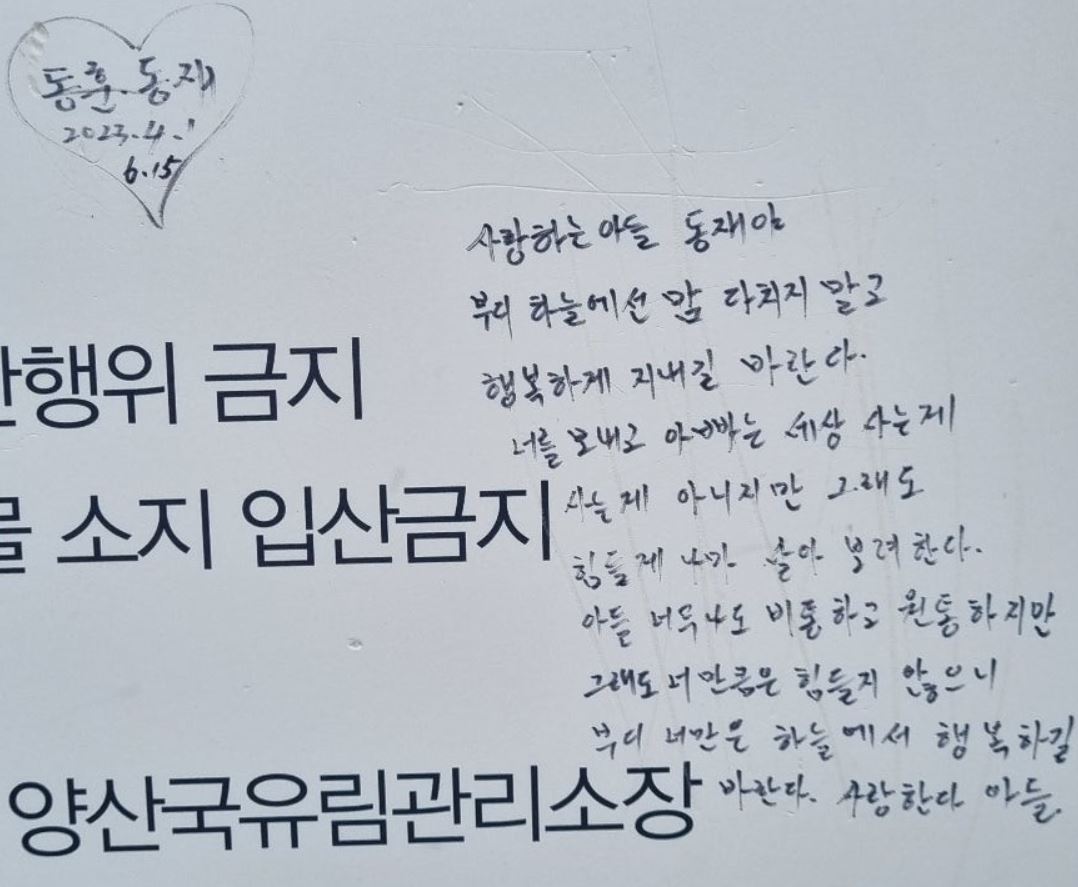 동훈.동재
2023.4.1
6.15
사랑하는 아들 동재야
부디 하늘에선 맘 다치지 말고
행복하게 지내길 바란다.
너를 보내고 아빠는 세상 사는게
행위 금지
사는게 아니지만 그래도
소지 입산금지
힘들게 나마 살아 보려 한다.
아들 너무나도 비통하고 원통하지만
그래도 너만큼은 힘들지 않으니
부디 너만은 하늘에서 행복하길
바란다. 사랑한다 아들.
양산국유림관리소장